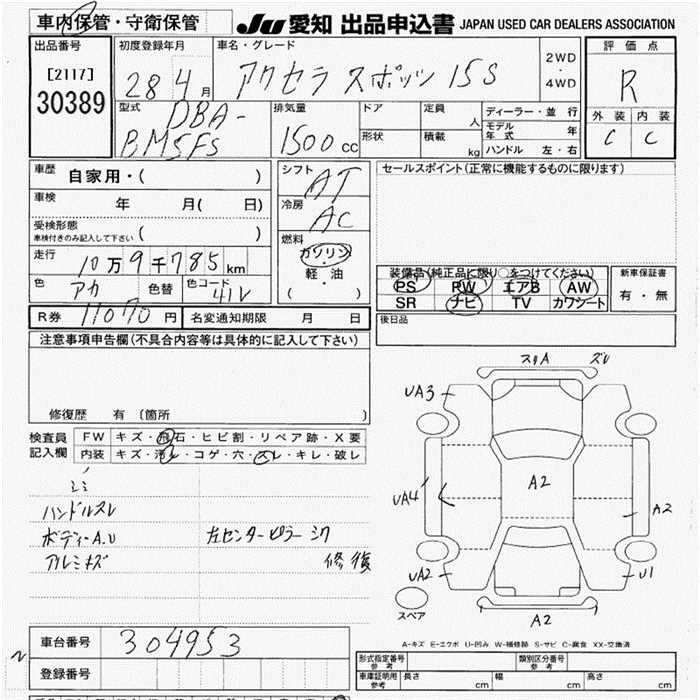 車内保管・守衛保管 JU 愛知 出品申込書 JAPAN USED CAR DEALERS ASSOCIATION
出品番号
[2117]
30389
初度登録年月
28年4月
車名・グレード
アクセラ スポーツ 15S
2WD
・
4WD
評価点
R
外装 内装
C C
型式
DBA-
BM5FS
排気量
1500cc
ドア
形状
定員 人
積載 kg
ディーラー・並行
モデル年式 年
ハンドル 左・右
車歴
自家用・( )
車検 年 月( 日)
受検形態
車検付きのみ記入して下さい ( )
走行
10万9千785km
色 アカ 色替 色コード 41V
シフト
AT
冷房
AC
燃料
ガソリン
・
軽・油
( )
セールスポイント(正常に機能するものに限ります)
装備品(純正品に限り○をつけてください)
PS PW エアB AW
SR ナビ TV カワシート
新車保証書
有・無
R券 11070円 名変通知期限 月 日
後日品
注意事項申告欄(不具合内容等は具体的に記入して下さい)
修復歴 有 〔箇所 〕
検査員
記入欄
FW キズ・飛石・ヒビ割・リペア跡・X要
内装 キズ・汚レ・コゲ・穴・スレ・キレ・破レ
シミ
ハンドルスレ
ボディーA.U 左センターピラー シワ
アルミキズ 修復
スリA ズレ
UA3
A2
UA4
A2
UA2
U1
A2
スペア
A-キズ E-エクボ U-凹み W-補修跡 S-サビ C-腐食 XX-交換済
車台番号 304953
登録番号
形式指定番号
参考
類別区分番号
参考
車庫証明用
参考
長さ cm 幅 cm 高さ cm